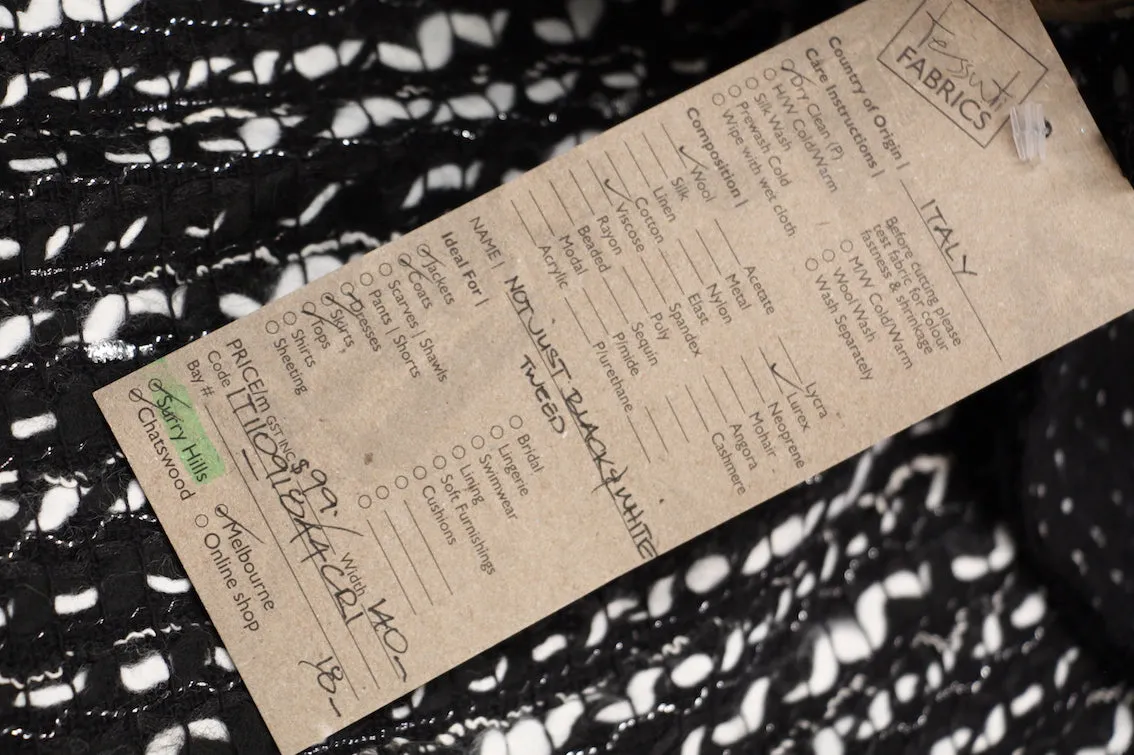 Tessuti
FABRICS
Country of Origin | ITALY
Care Instructions |
Before cutting please
test fabric for colour
fastness & shrinkage
Dry Clean (P)
H/W Cold/Warm
Silk Wash
Prewash Cold
Wipe with wet cloth
M/W Cold/Warm
Wool Wash
Wash Separately
Composition |
Wool
Silk
Linen
Cotton
Viscose
Rayon
Beaded
Modal
Acrylic
Acetate
Metal
Nylon
Elast
Spandex
Poly
Sequin
P/mide
P/urethane
Lycra
Lurex
Neoprene
Mohair
Angora
Cashmere
NAME | NOT JUST BLACK & WHITE
TWEED
Ideal For |
Jackets
Coats
Scarves | Shawls
Pants | Shorts
Dresses
Skirts
Tops
Shirts
Sheeting
Bridal
Lingerie
Swimwear
Lining
Soft Furnishings
Cushions
PRICE/m GST INC $99.- Width 140-
Code
Bay # 18-
Surry Hills
Chatswood
Melbourne
Online shop